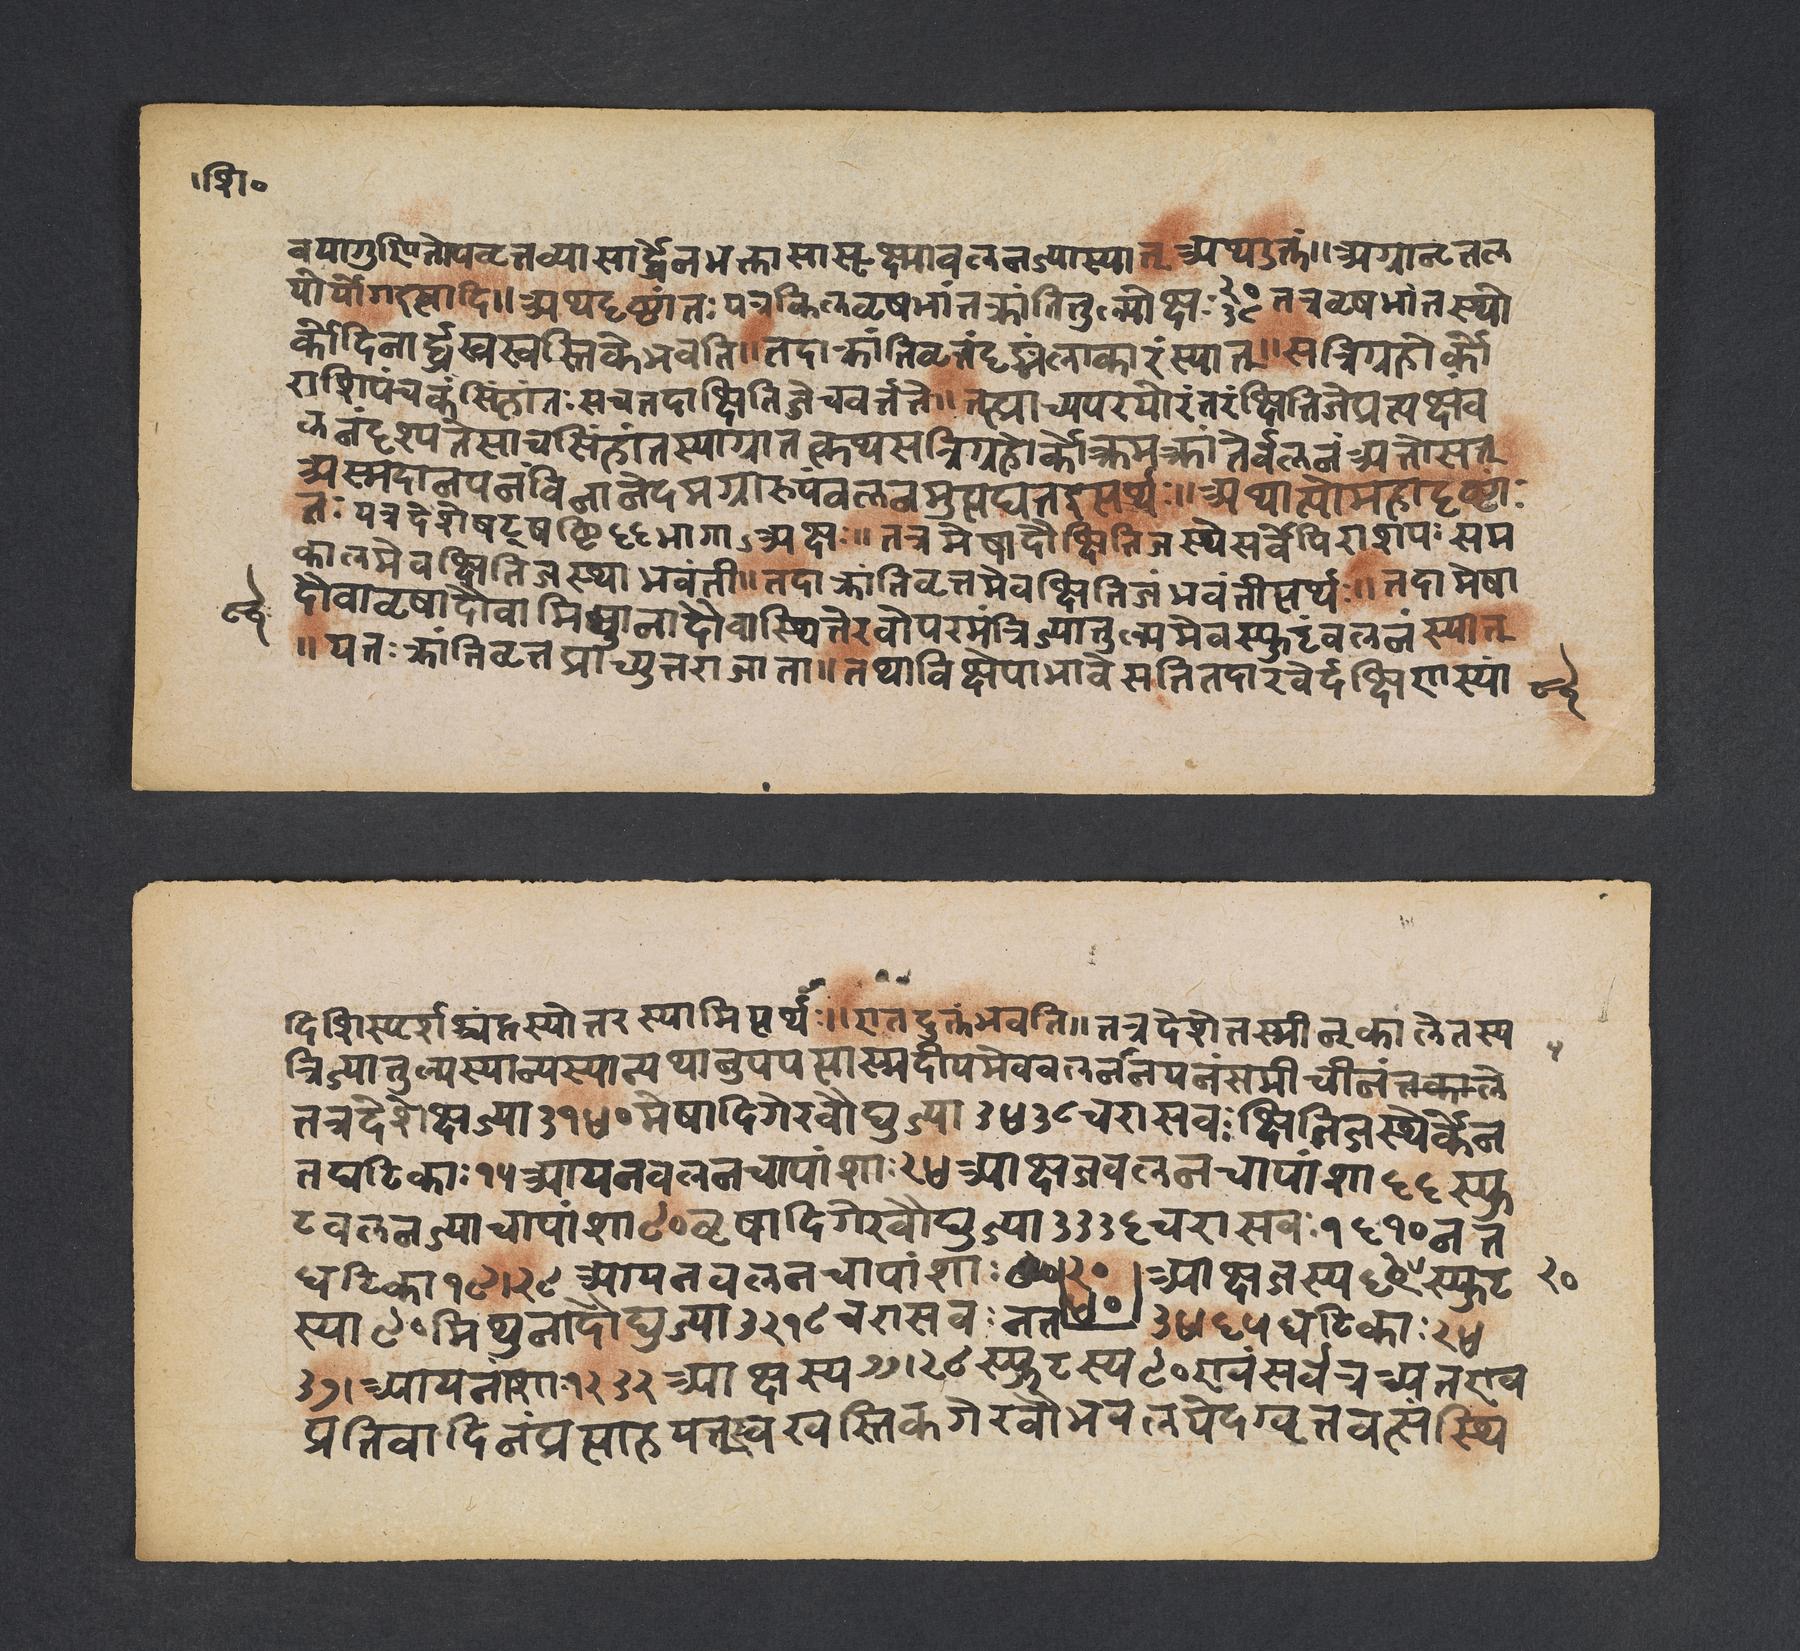 ।शि०
वयागुणितोपवृत्तव्यासार्द्धेनभक्तासासूक्ष्मावलनज्यास्यात् अथउक्तं॥अग्रान्टतल
योर्योगइत्यादि॥अथदृष्टांतः यत्रकिलवृषभांतक्रांतितुल्योक्षः २०।३९ तत्रवृषभांतस्थो
र्कोदिनार्द्धेखखस्तिकेभवति॥तदाक्रांतिवृत्तंदृङ्मंलाकारंस्यात्॥सत्रिगृहोर्को
राशिपंचकंसिंहांतः सचतदाक्षितिजेचवर्त्तते॥तत्प्राच्यपरयोरंतरंक्षितिजेप्रत्यक्षंव
लनंदृश्यतेसाचसिंहांतस्याग्रातत्कथसत्रिगृहोर्कोत्क्रमक्रांतेर्वलनं अतोसत्
अस्मदानयनंविनानेदमग्रारूपंवलनमुत्पद्यतइत्यर्थः॥अथान्योमहादृष्टां
तः यत्रदेशेषट्षष्टि६६भागाऽअक्षः॥तत्रमेषादौक्षितिजस्थेसर्वेपिराशयः सम
कालमेवक्षितिजस्थाभवंती॥तदाक्रांतिवृत्तमेवक्षितिजंभवंतीत्यर्थः॥तदामेषा
दौवावृषादौवामिथुनादौवास्थितेरवोपरमंत्रिज्यातुल्यमेवस्फुटंवलनंस्यात्
॥यतः क्रांतिवृत्तप्राच्युत्तराजाता॥तथाविक्षेपाभावेसतितदारवेर्दक्षिणस्यां
दिशिस्पर्शश्चंद्रस्योत्तरस्यामित्यर्थः॥एतदुक्तंभवति॥तत्रदेशेतस्मीन्कालेतस्य
त्रिज्यातुल्यस्यान्यस्यान्यथानुपपत्त्यास्मदीयमेववलनानयनंसमीचीनंतत्काले
तत्रदेशेक्षज्या३१४०मेषादिगेरवौद्युज्या ३४३८चरासवः क्षितिजस्थेर्केन
तघटिकाः१५आयनवलनचापांशाः२४आक्षजवलनचापांशा६६स्फु
टवलनज्याचापांशा९०वृषादिगेरवौद्युज्या३३६६चरासवः१६१०नत
घटिका१९।२९आयनवलनचापांशाः २० आक्षजस्य६९स्फुट
२०
स्या९०मिथुनादौद्युज्या३२१८चरासवः नत ३४६५घटिकाः२४
३७।आयनांशाः१२३२आक्षस्य७७।२८स्फुटस्य९०एवंसर्वत्रअतएव
प्रतिवादिनंप्रत्याहयत्खखस्तिकगेरवौभवलयेदग्वृत्तवत्संस्थि